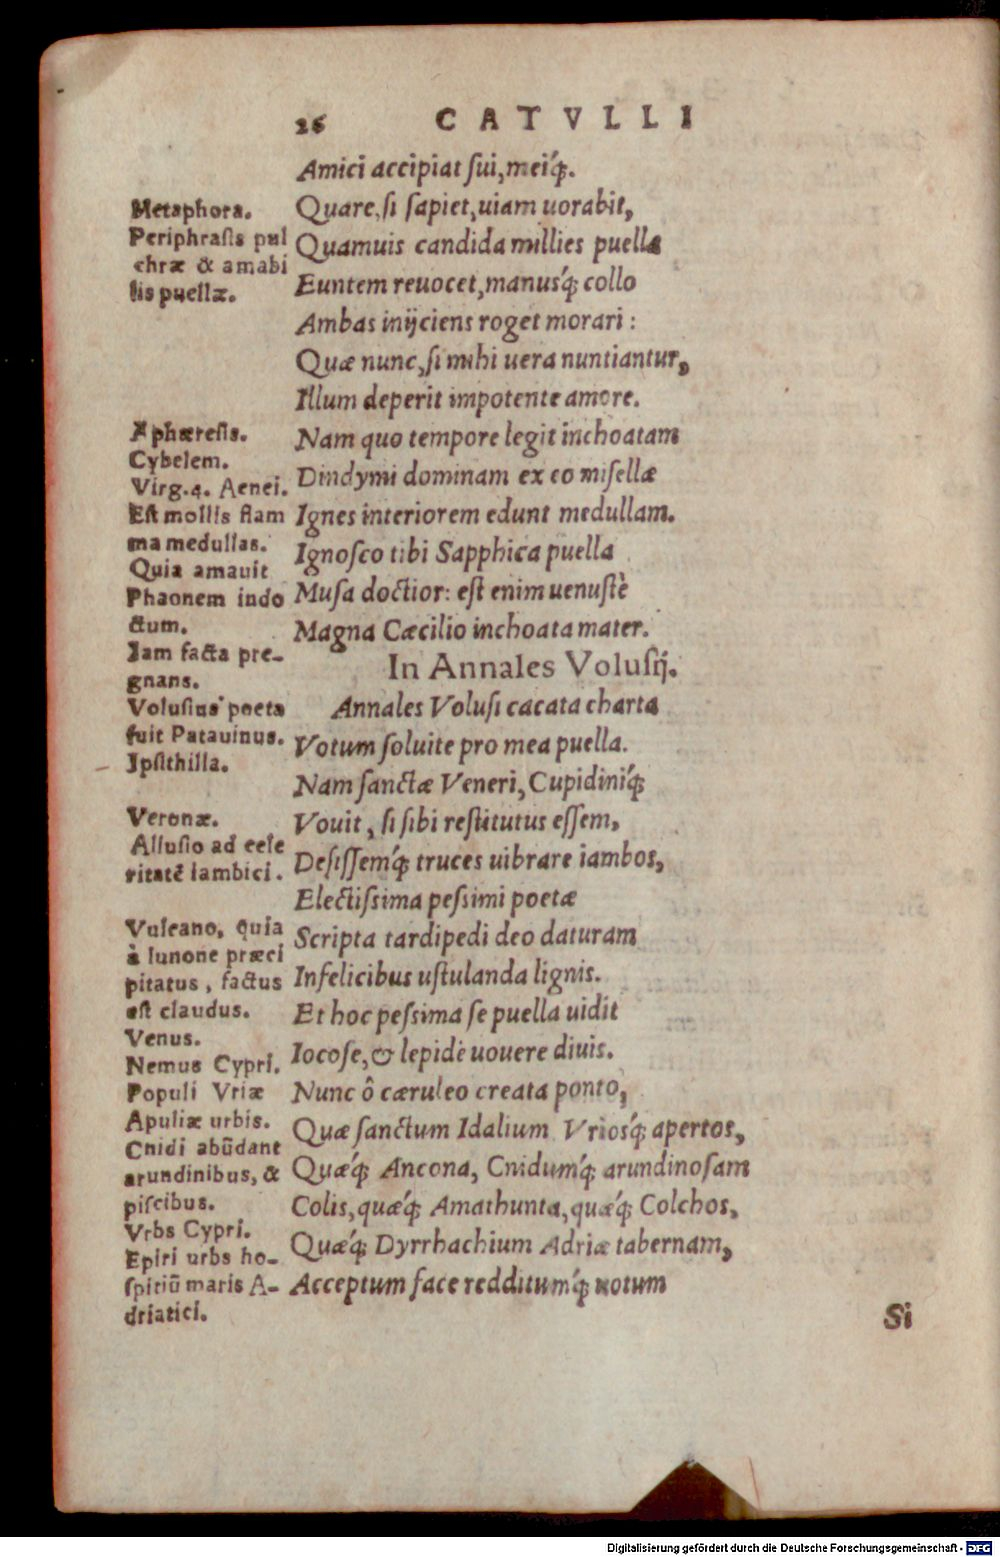 26 CATVLLI
Amici accipiat ſui, meiq́;.
Quare, ſi ſapiet, uiam uorabit,
Quamuis candida millies puella
Euntem reuocet, manusq́; collo
Ambas inijciens roget morari:
Quæ nunc, ſi mihi uera nuntiantur,
Illum deperit impotente amore.
Nam quo tempore legit inchoatam
Dindymi dominam ex eo miſellæ
Ignes interiorem edunt medullam.
Ignoſco tibi Sapphica puella
Muſa doctior: eſt enim uenuſtè
Magna Cæcilio inchoata mater.
In Annales Voluſij.
Annales Voluſi cacata charta
Votum ſoluite pro mea puella.
Nam ſanctæ Veneri, Cupidiniq́;
Vouit, ſi ſibi reſtitutus eſſem,
Deſiſſemq́; truces uibrare iambos,
Electiſsima peſsimi poetæ
Scripta tardipedi deo daturam
Infelicibus uſtulanda lignis.
Et hoc peſsima ſe puella uidit
Iocoſe, & lepidè uouere diuis.
Nunc ô cæruleo creata ponto,
Quæ ſanctum Idalium Vriosq́; apertos,
Quæq́; Ancona, Cnidumq́; arundinoſam
Colis, quæq́; Amathunta, quæq́; Colchos,
Quæq́; Dyrrhachium Adriæ tabernam,
Acceptum face redditumq́; uotum
Si
Metaphora.
Periphraſis pul
chræ & amabi
lis puellæ.
Aphæreſis.
Cybelem.
Virg.4. Aenei.
Eſt mollis flam
ma medullas.
Quia amauit
Phaonem indo
ctum.
Iam facta pre-
gnans.
Voluſius poeta
fuit Patauinus.
Ipſithilla.
Veronæ.
Alluſio ad cele
ritatē iambici.
Vulcano, quia
à Iunone præci
pitatus, factus
eſt claudus.
Venus.
Nemus Cypri.
Populi Vriæ
Apuliæ urbis.
Cnidi abūdant
arundinibus, &
piſcibus.
Vrbs Cypri.
Epiri urbs ho-
ſpitiū maris A-
driatici.
Digitalisierung gefördert durch die Deutsche Forschungsgemeinschaft - DFG